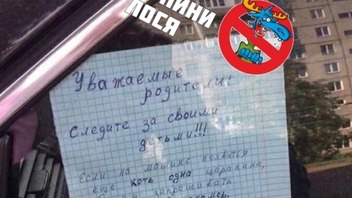 ПИНИ
ЛОСЯ
Уважаемые
родители!
Следите за своими
детьми!!!
Если на машине появится
ещё хоть одна царапина,